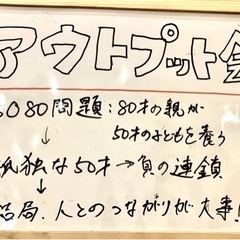 アウトプット会
8080問題：80才の親が
50才の子どもを養う
孤独な50才→負の連鎖
↓
結局、人とのつながりが大事!